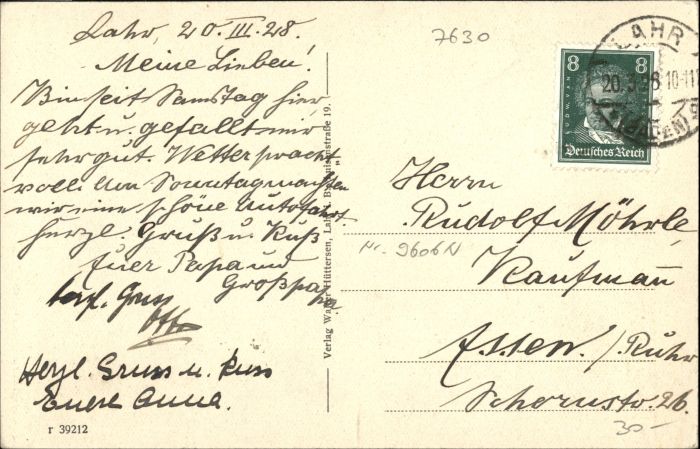 Lahr, 20.III.28.
Meine Lieben!
Bin seit Samstag hier,
geht u. gefallt mir
sehr gut. Wetter pracht
voll. Am Sonntag machten
wir eine schöne Autofahrt.
herzl. Gruß u. Kuß
Euer Papa und
Großpapa
herzl. Gruss
Otto
Herzl. Gruss u. Kuss
Eure Anna.
r 39212
Verlag Walter Hüttersen, Lahr i. B., straße 19.
7630
8 8
LUDW. VAN
Deutsches Reich
LAHR
20.3.28 10-11
(BADEN)
Herrn
Rudolf Möhrle,
Nr. 9606N
Kaufmann
Essen/Ruhr
Schornstr. 26.
30-